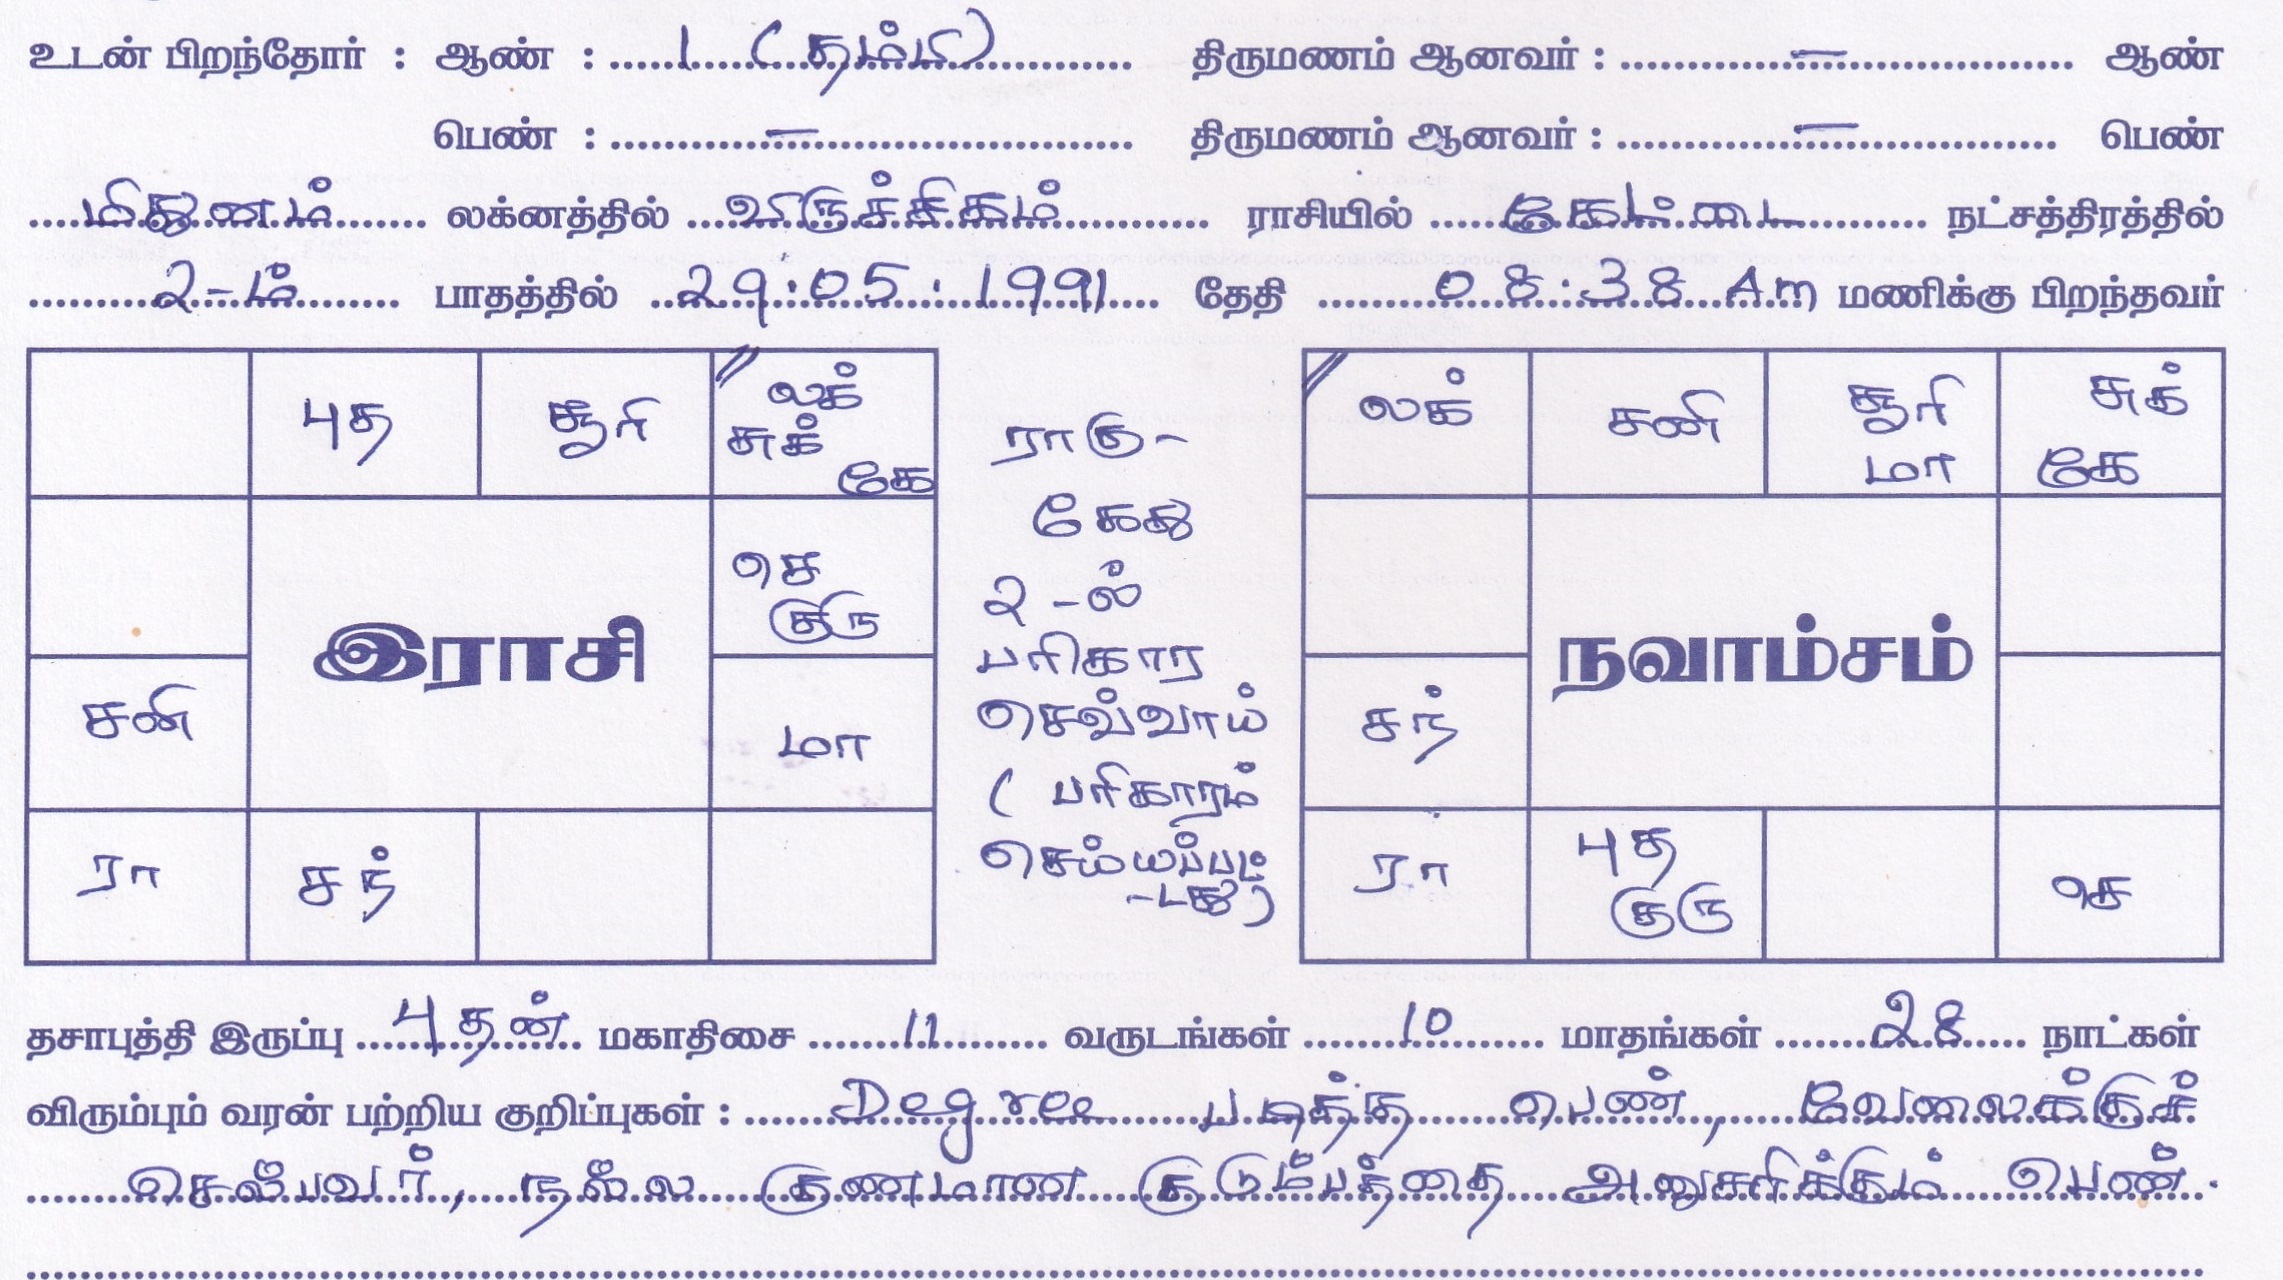 உடன் பிறந்தோர் : ஆண் : 1 (தம்பி) திருமணம் ஆனவர் : — ஆண்
பெண் : — திருமணம் ஆனவர் : — பெண்
மிதுனம் லக்னத்தில் விருச்சிகம் ராசியில் கேட்டை நட்சத்திரத்தில்
2-ம் பாதத்தில் 29.05.1991 தேதி 08:38 Am மணிக்கு பிறந்தவர்
புத சூரி லக் சுக் கே
செ குரு
இராசி
சனி மா
ரா சந்
ராகு-
கேது
2-ல்
பரிகார
செவ்வாய்
( பரிகாரம்
செய்யப்பட்
-டது)
லக் சனி சூரி மா சுக் கே
நவாம்சம்
சந்
ரா புத குரு செ
தசாபுத்தி இருப்பு புதன் மகாதிசை 11 வருடங்கள் 10 மாதங்கள் 28 நாட்கள்
விரும்பும் வரன் பற்றிய குறிப்புகள் : Degree படித்த பெண், வேலைக்குச்
செல்பவர், நல்ல குணமான குடும்பத்தை அனுசரிக்கும் பெண்.